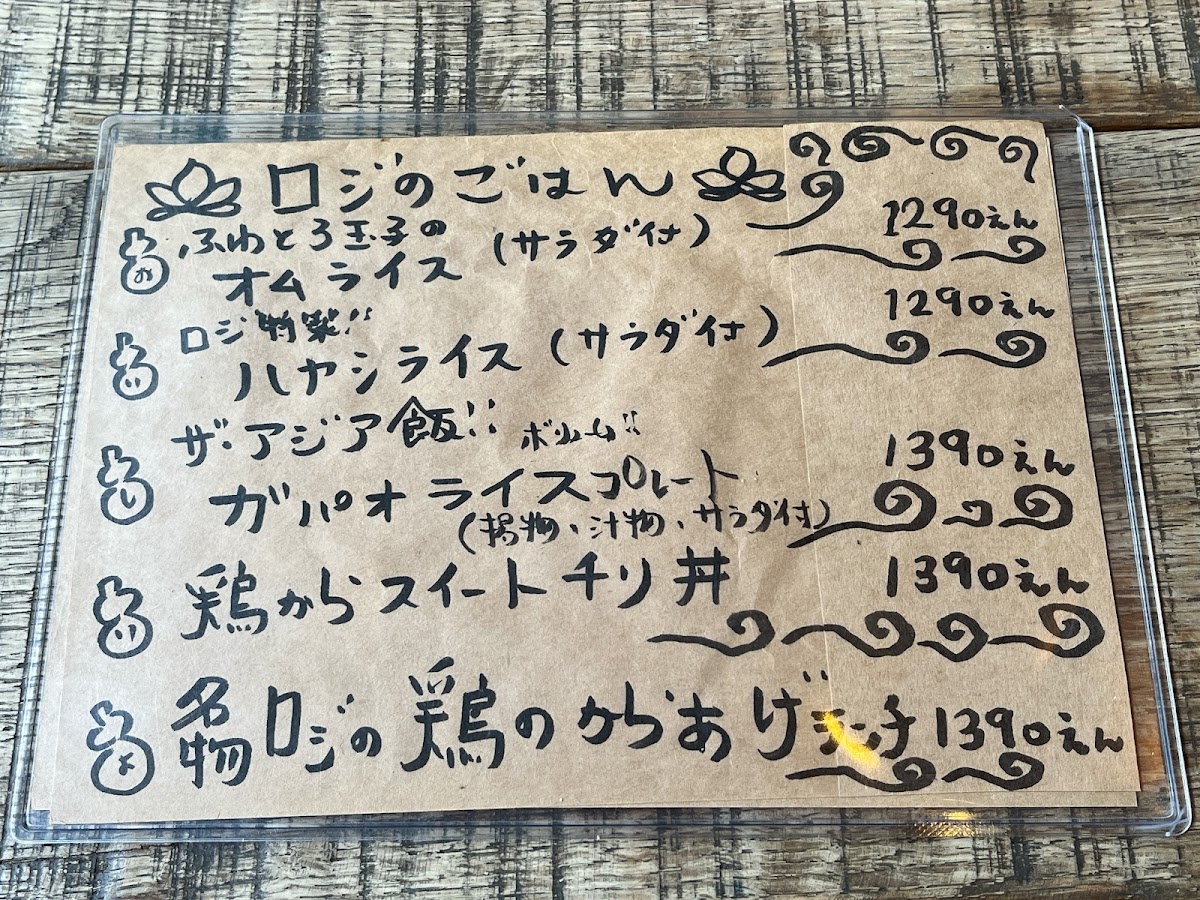 ロジのごはん
ふわとろ玉子の
オムライス (サラダ付) 1290えん
ロジ特製!!
ハヤシライス (サラダ付) 1290えん
ザ・アジア飯!! ボリューム!!
ガパオライスプレート 1390えん
(揚物、汁物、サラダ付)
鶏からスイートチリ丼 1390えん
名物ロジの鶏のからあげ 1390えん